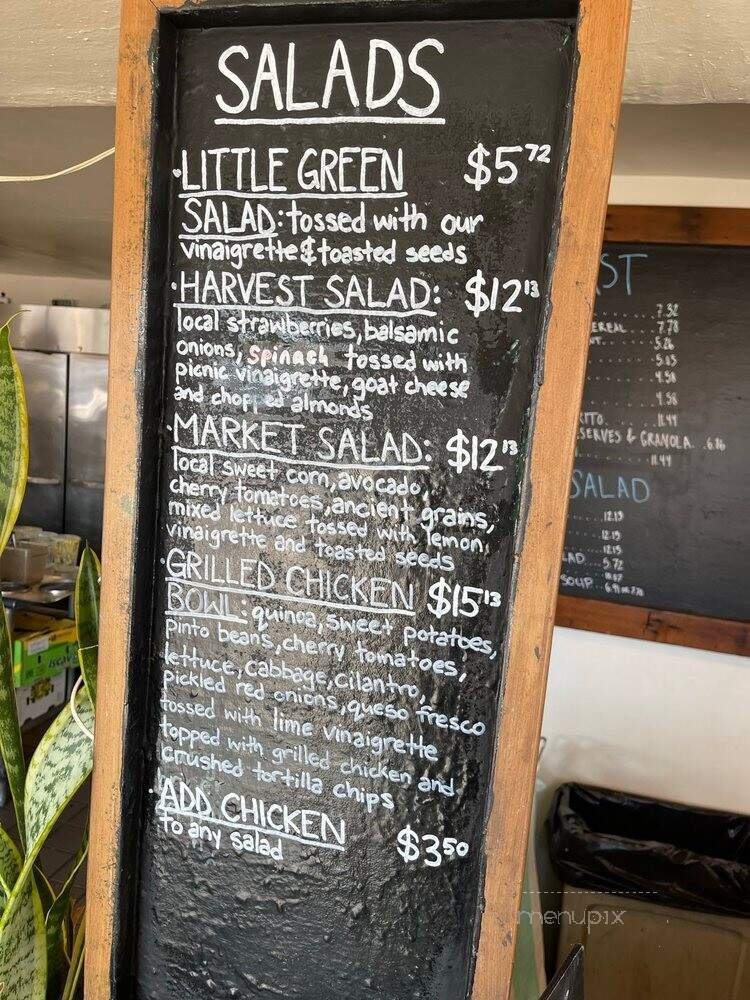 SALADS
·LITTLE GREEN $5.72
SALAD: tossed with our
vinaigrette & toasted seeds
·HARVEST SALAD: $12.13
local strawberries, balsamic
onions, spinach tossed with
picnic vinaigrette, goat cheese
and chopped almonds
·MARKET SALAD: $12.13
local sweet corn, avocado,
cherry tomatoes, ancient grains,
mixed lettuce tossed with lemon
vinaigrette and toasted seeds
·GRILLED CHICKEN $15.13
BOWL: quinoa, sweet potatoes,
pinto beans, cherry tomatoes,
lettuce, cabbage, cilantro,
pickled red onions, queso fresco
tossed with lime vinaigrette
topped with grilled chicken and
crushed tortilla chips
·ADD CHICKEN
to any salad $3.50
ST
7.32
EREAL 7.78
5.26
4.58
4.58
11.49
SERVES & GRANOLA
11.49
SALAD
12.13
12.13
LAD 5.72
SOUP
menupix